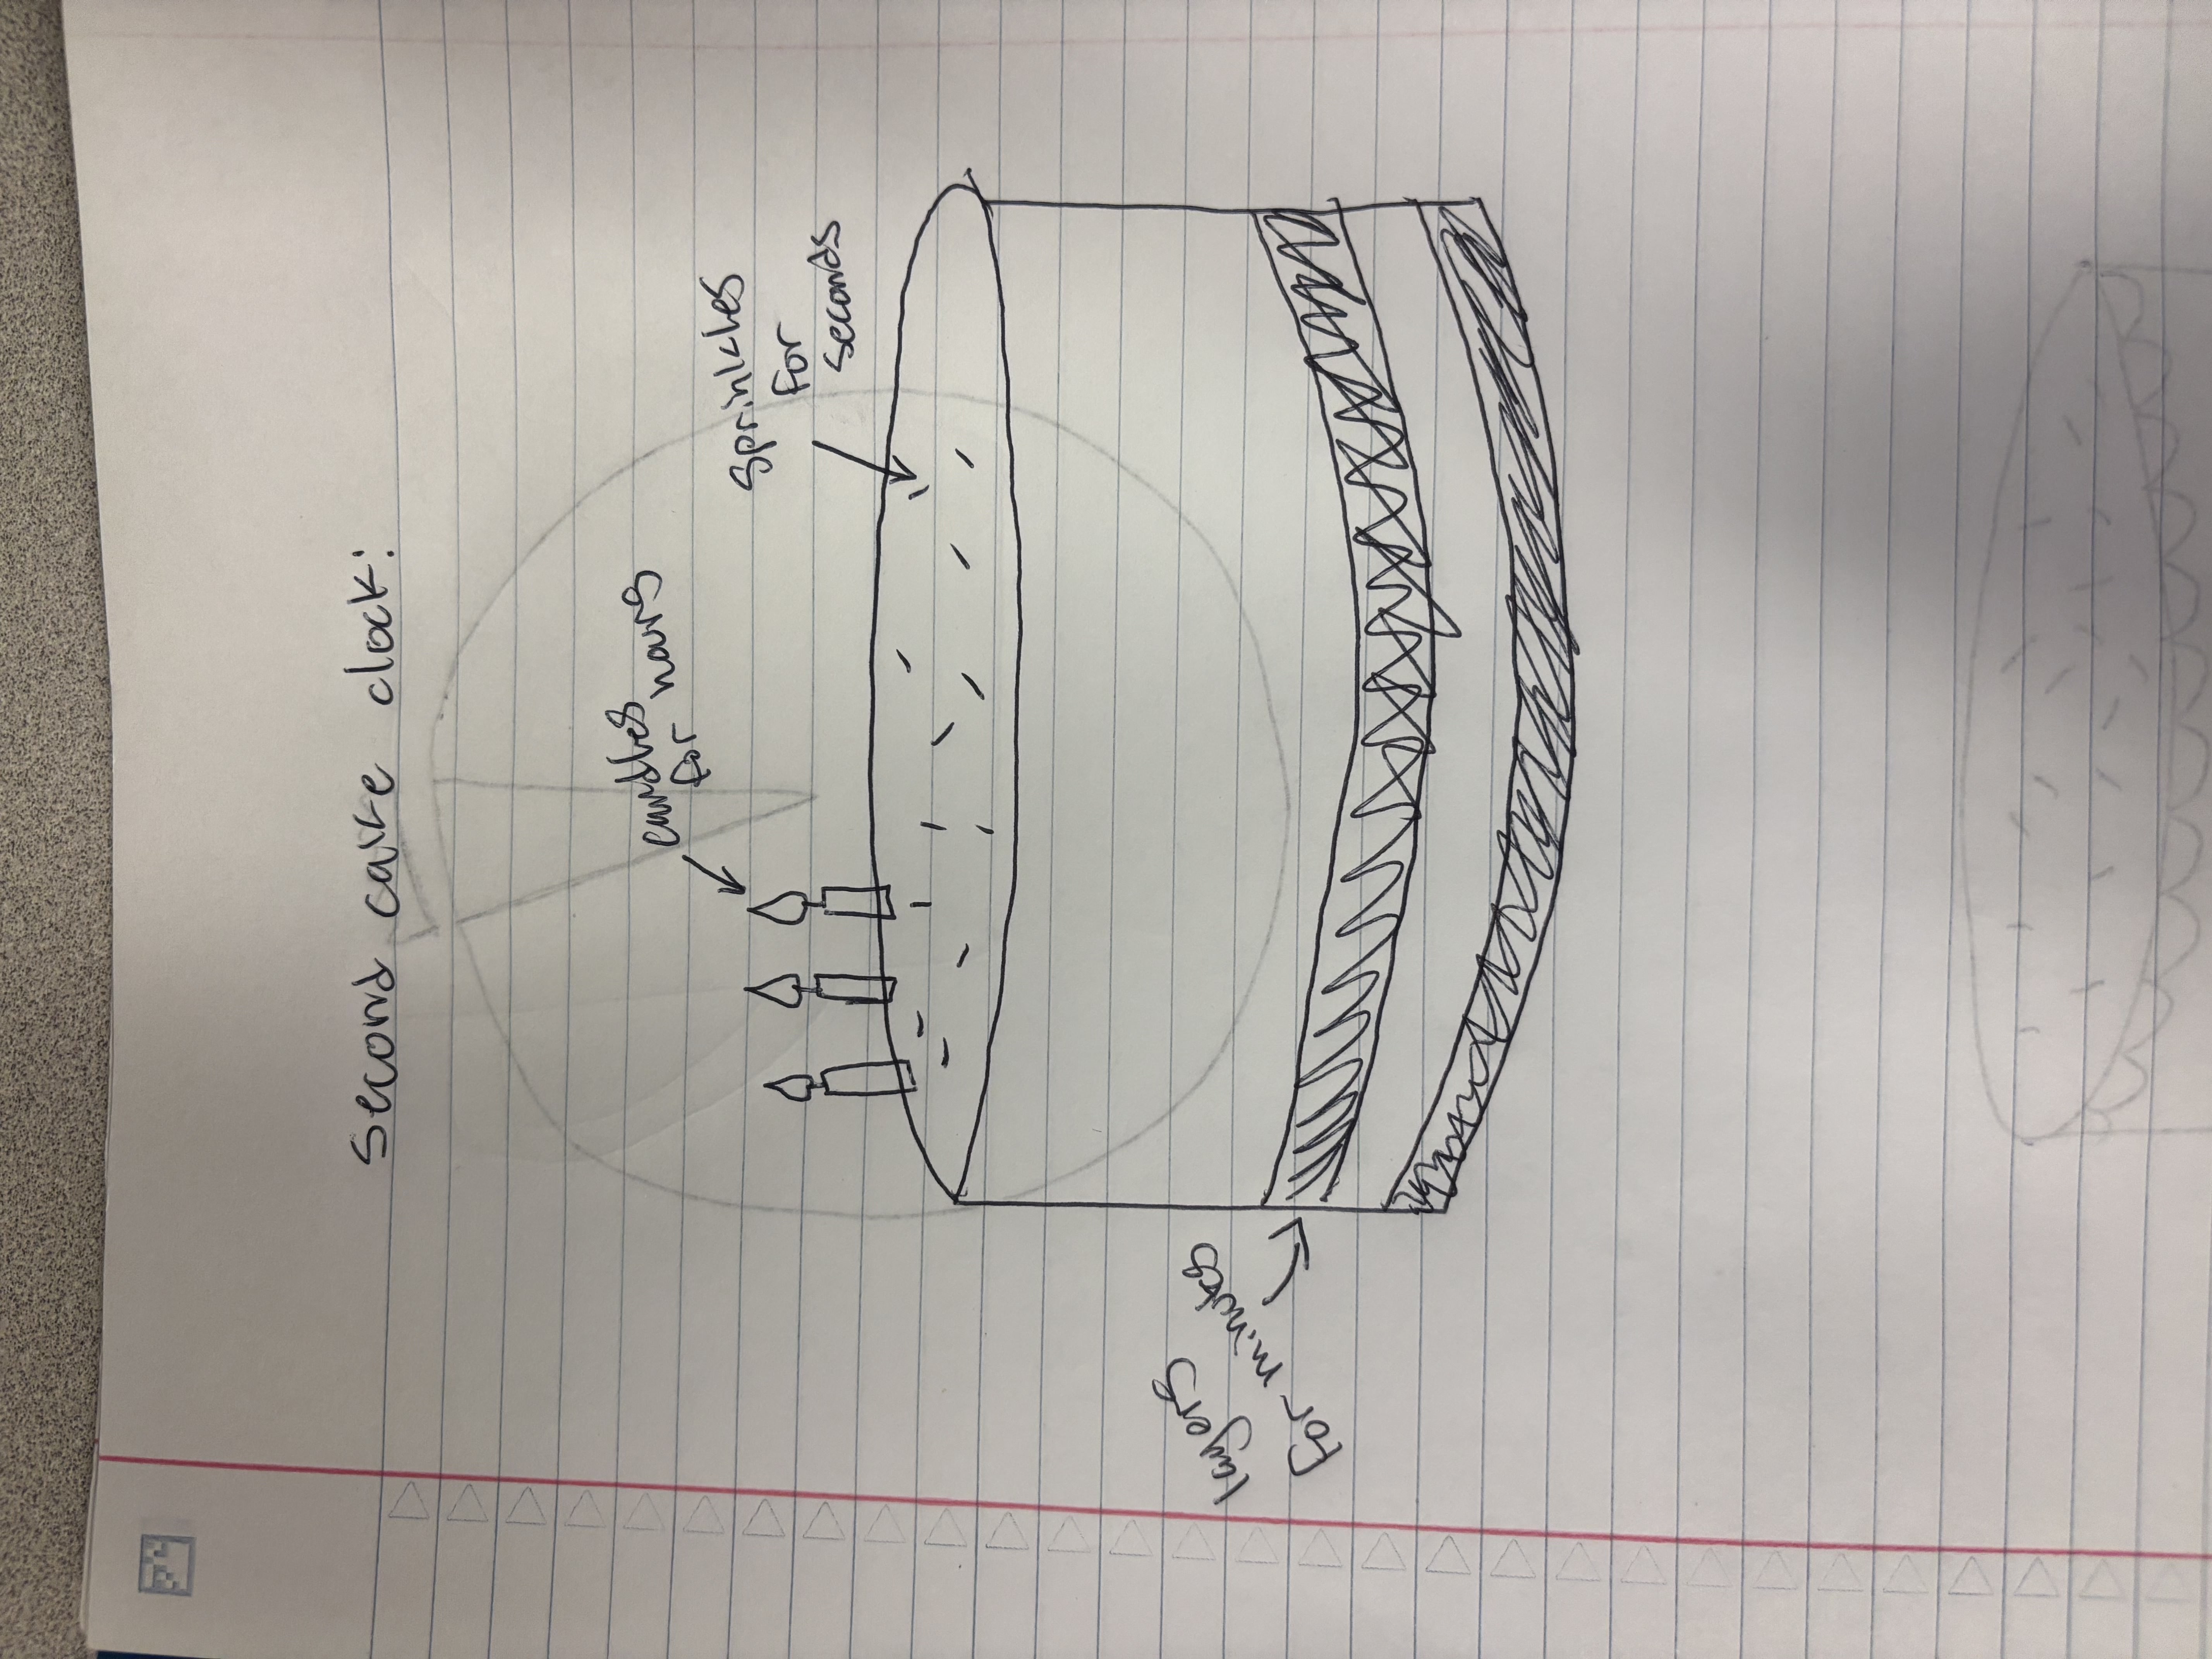 second cake clock:
candles
for hours
sprinkles
for
seconds
layers
for minutes